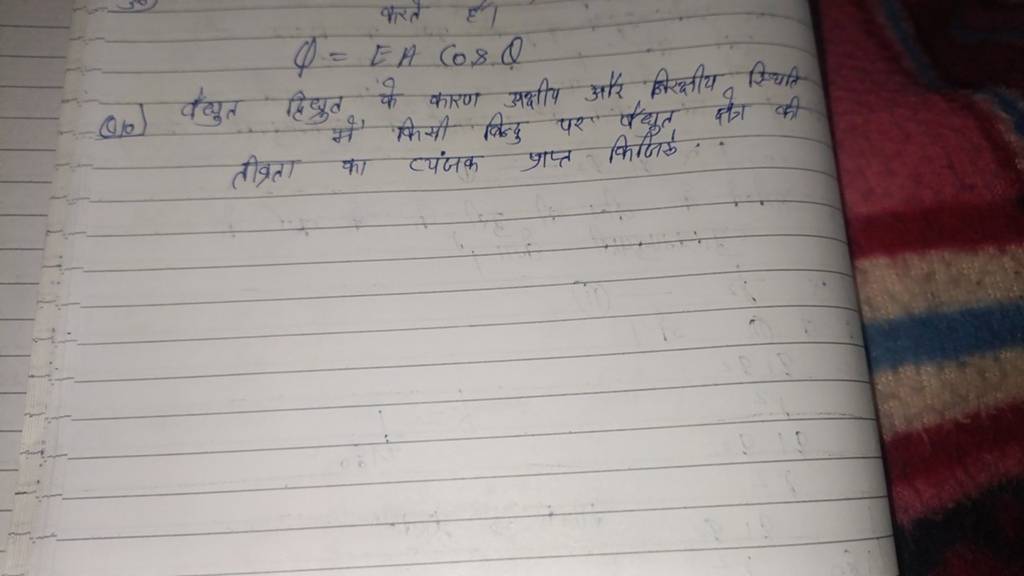 करते हैं।
φ = EA Cos θ
Q10) वैधुत द्विध्रुत के कारण अक्षीय और निरक्षीय स्थिति
में किसी बिन्दु पर वैधुत क्षेत्र की
तीव्रता का व्यंजक प्राप्त किजिऐ